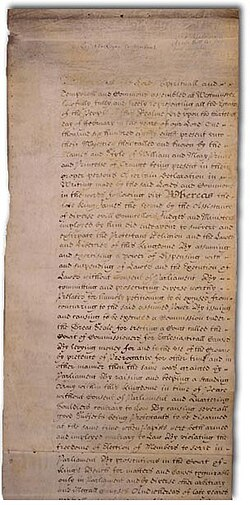 Lords Spirituall and
Temporall and Comons assembled at Westminster
lawfully fully and freely representing all the Estates
of the People of this Realme did upon the
day of February in the yeare of our Lord One
thousand six hundred eighty eight present unto
their Majesties then called and knowne by the
Names and Stile of William and Mary Prince
and Princesse of Orange being present in their
proper persons A certain Declaration in
Writing made by the said Lords and Comons
in the words following viz Whereas the
late King James the Second by the Assistance
of diverse evill Councellors Judges and Ministers
imployed by him did endeavour to subvert and
extirpate the Protestant Religion and the Lawes
and Liberties of this Kingdome By assuming
and exercising a power of dispensing with
and suspending of Lawes and the Execution of
Lawes without Consent of Parliament By
committing and prosecuting diverse worthy
Prelates for humbly petitioning to be excused from
concurring to the said assumed power By issuing
and causing to be executed a Comission under
the Great Seale for erecting a Court called the
Court of Commissioners for Ecclesiasticall Causes
By levying money for and to the use of the Crowne
by pretence of Prerogative for other time and in
other manner then the same was granted by
Parliament By raising and keeping a standing
Army within this Kingdome in time of Peace
without Consent of Parliament and Quartering
Souldiers contrary to Law By causing severall
good Subjects being Protestants to be disarmed
at the same time when Papists were both armed
and imployed contrary to Law By violating the
freedome of Election of Members to serve in
Parliament By prosecutions in the Court of
Kings Bench for matters and causes cognizable
only in Parliament and by diverse other arbitrary
and illegall courses And whereas of late yeares